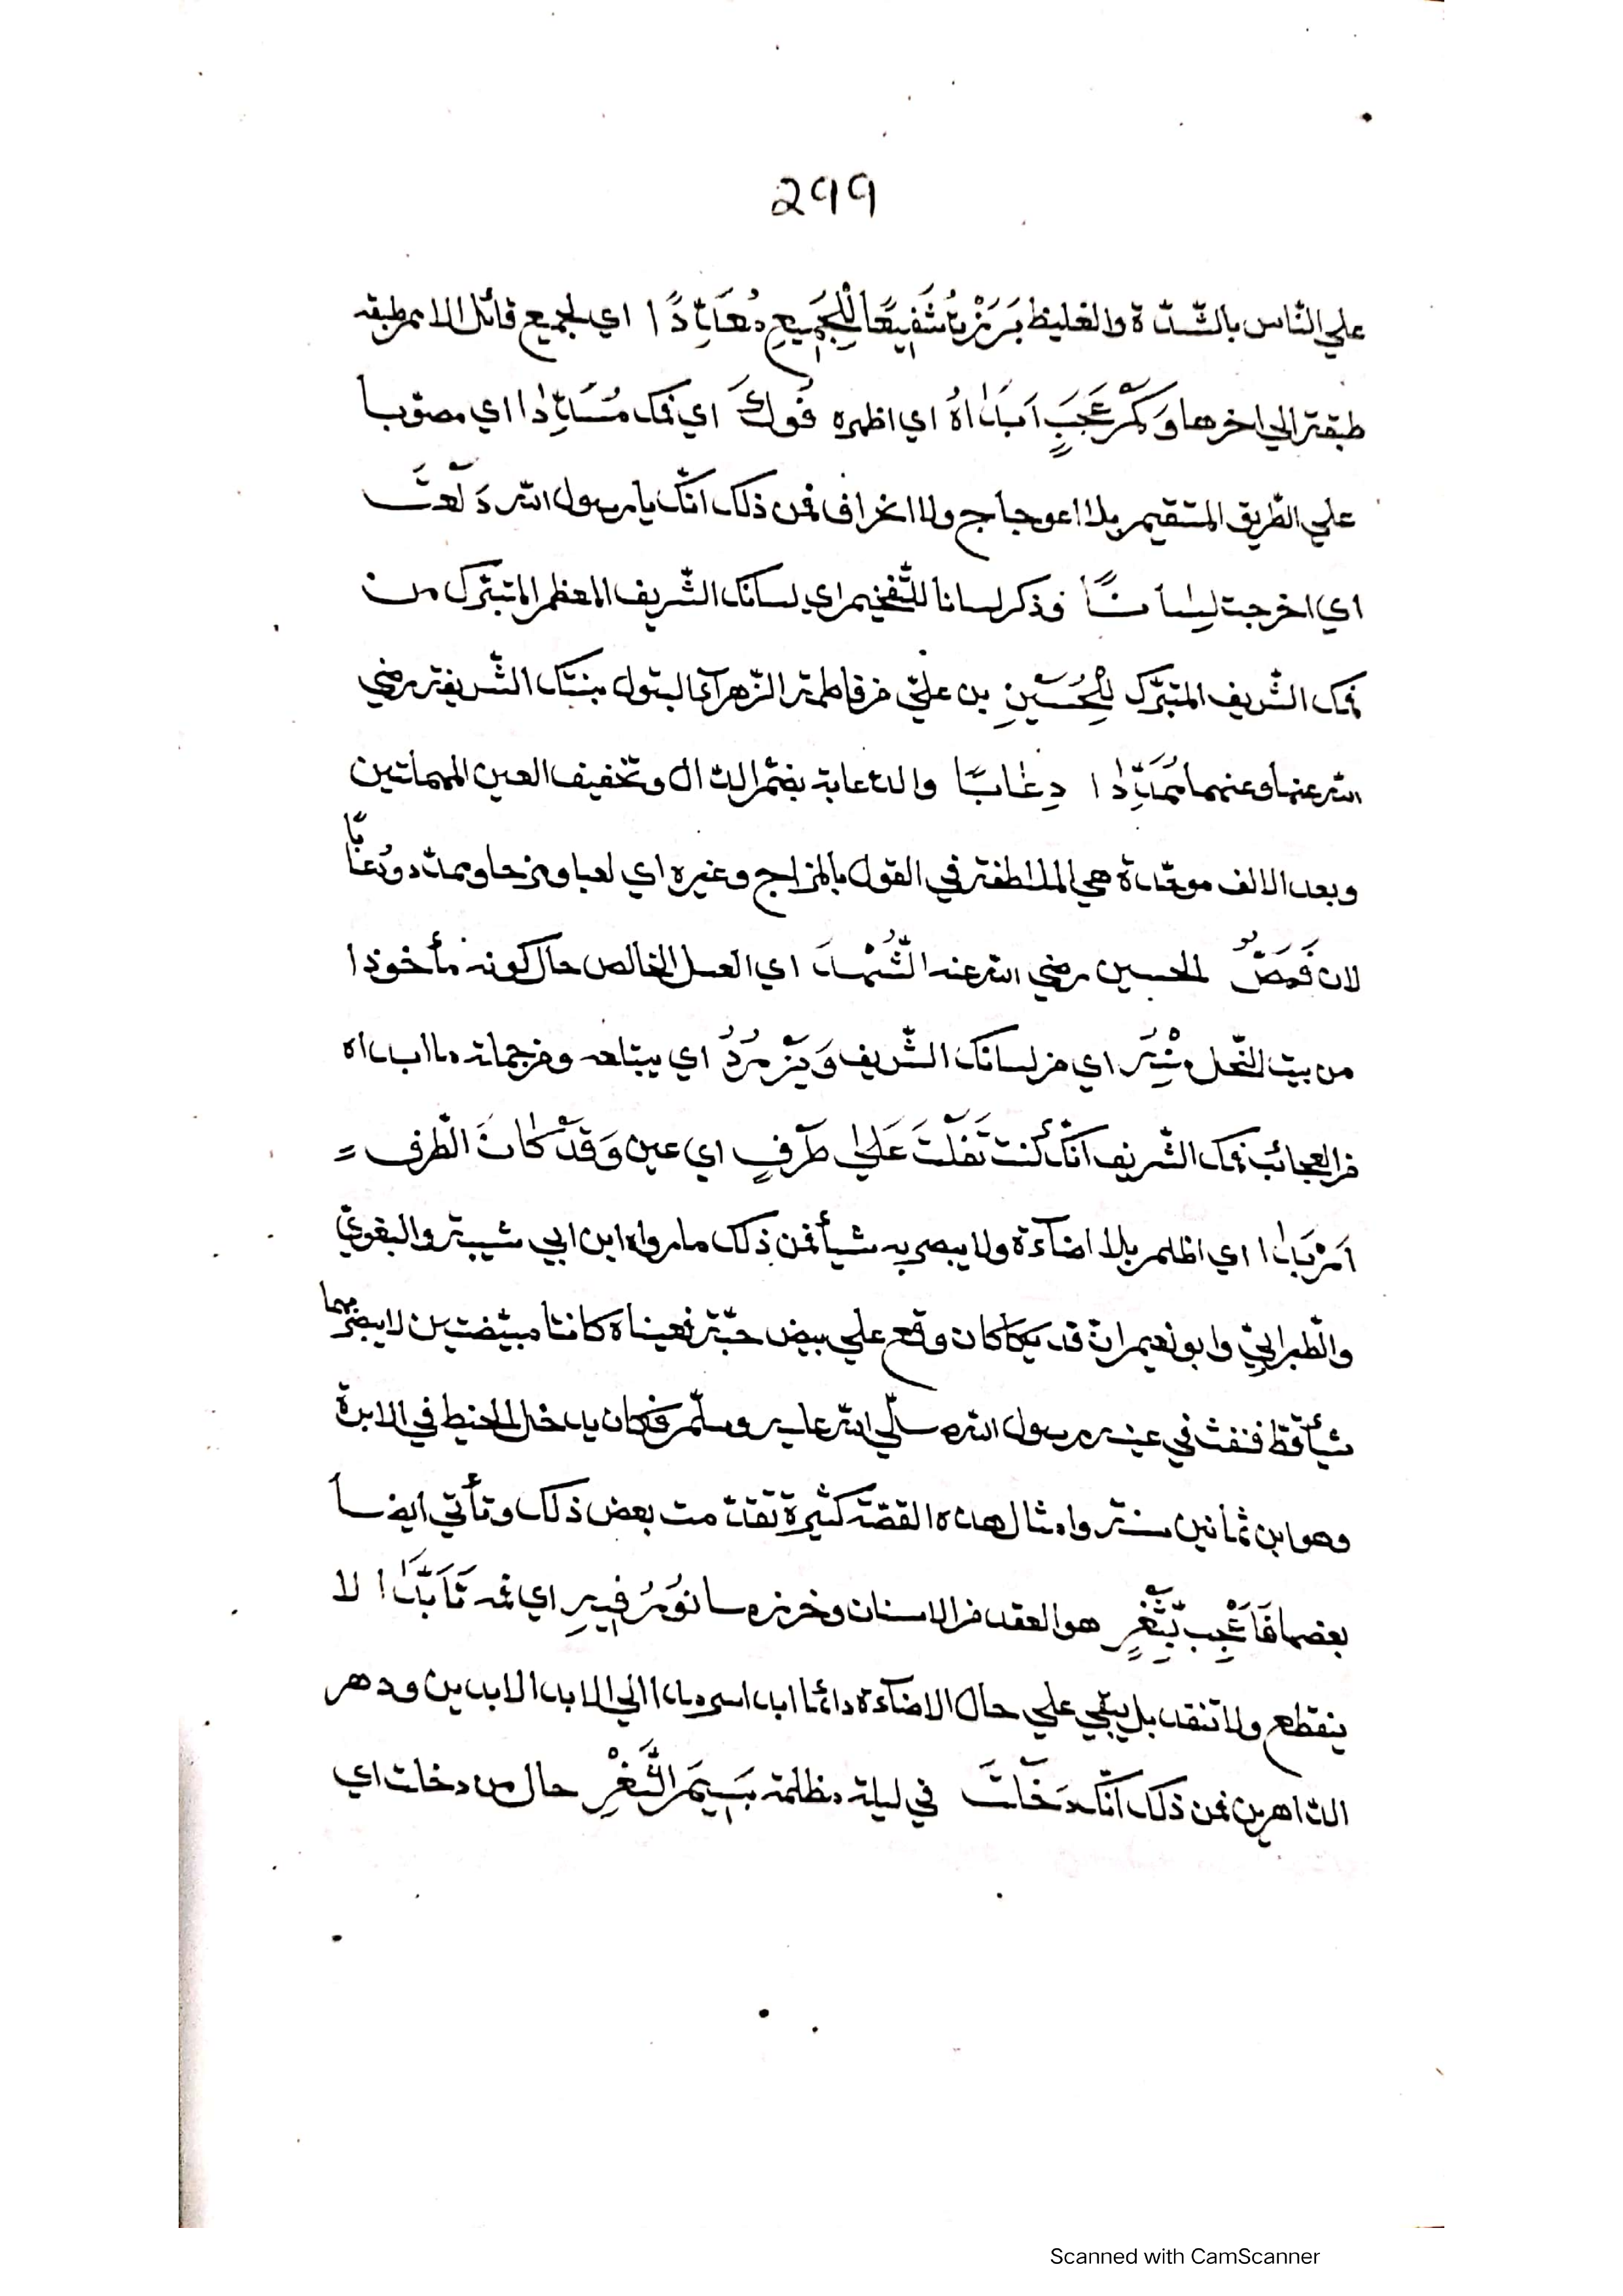 299
علي النّاس بالشّدّة والغليظ بَرَزْتَ شَفِيعًا لِلْجَمِيعِ مُعَدَّدًا اي لجميع قائل الامم طبقه
طبقة الي اخرها وَكَمْ عَجَبٍ اَبْدَاهُ اي اظهره فُوكَ اي فمك مُسَدَّدًا اي مصوّبا
علي الطّريق المستقيم بلا اعوجاج ولا انحراف فمن ذلك انّك يا رسول الله دَلَعْتَ
اي اخرجت لِسَانًا فذكر لسانا للتّفخيم اي لسانك الشّريف المعظم المتبرّك من
فمك الشّريف المتبرّك لِلْحُسَيْنِ بن عليّ من فاطمة الزّهرآء البتول بنتك الشّريفة رضي
الله عنها وعنهما دِعَابًا والدعابة بضمّ الدّال وتخفيف العين المهملتين
وبعد الالف موحّدة هي الملاطفة في القول بالمزاح وغيره اي لعبا ومزحا
لان فَمَصَّ الحسين رضي الله عنه الشُّهْدَ اي العسل الخالص حال كونه مأخوذا
من بيت النّحل مِنْهُ اي من لسانك الشّريف وَيَزْرُدُ اي يبتلعه ومن جملة ما ابداه
من العجائب فمك الشّريف انّك كنت تَفَلْتَ عَلَى طَرْفٍ اي عين وَقَدْ كَانَ الطّرف =
اَرْبَدَا اي اظلم بلا اضآءة ولا يبصر به شيأ فمن ذلك ما رواه ابن ابي شيبة والبغويّ
والطّبرانيّ وابو نعيم انّ فديكا كان وقع علي بيض حيّة فعيناه كانتا مبيضّتين لا يبصر بهما
شيأ قطّ فنفث في عينه رسول الله صلّي الله عليه وسلّم فكان يدخل الخيط في الابرة
وهو ابن ثمانين سنة وامثال هذه القصّة كثيرة تقدّمت بعض ذلك وتأتي ايضا
بعضها فَاَعْجِب بِثَغْرٍ هو العقد من الاسنان وخرزه نُورُ فِيهِ اي فمه تَأَبَّدَا لا
ينقطع ولا تنفد بل يبقي علي حال الاضآءة دائما ابدا سرمدا الي الابد الابدين ودهر
الدّاهرين فمن ذلك انّك دَخَلْتَ في ليلة مظلمة بَسِيمَ الثَّغْرِ حال من دخلت اي
Scanned with CamScanner